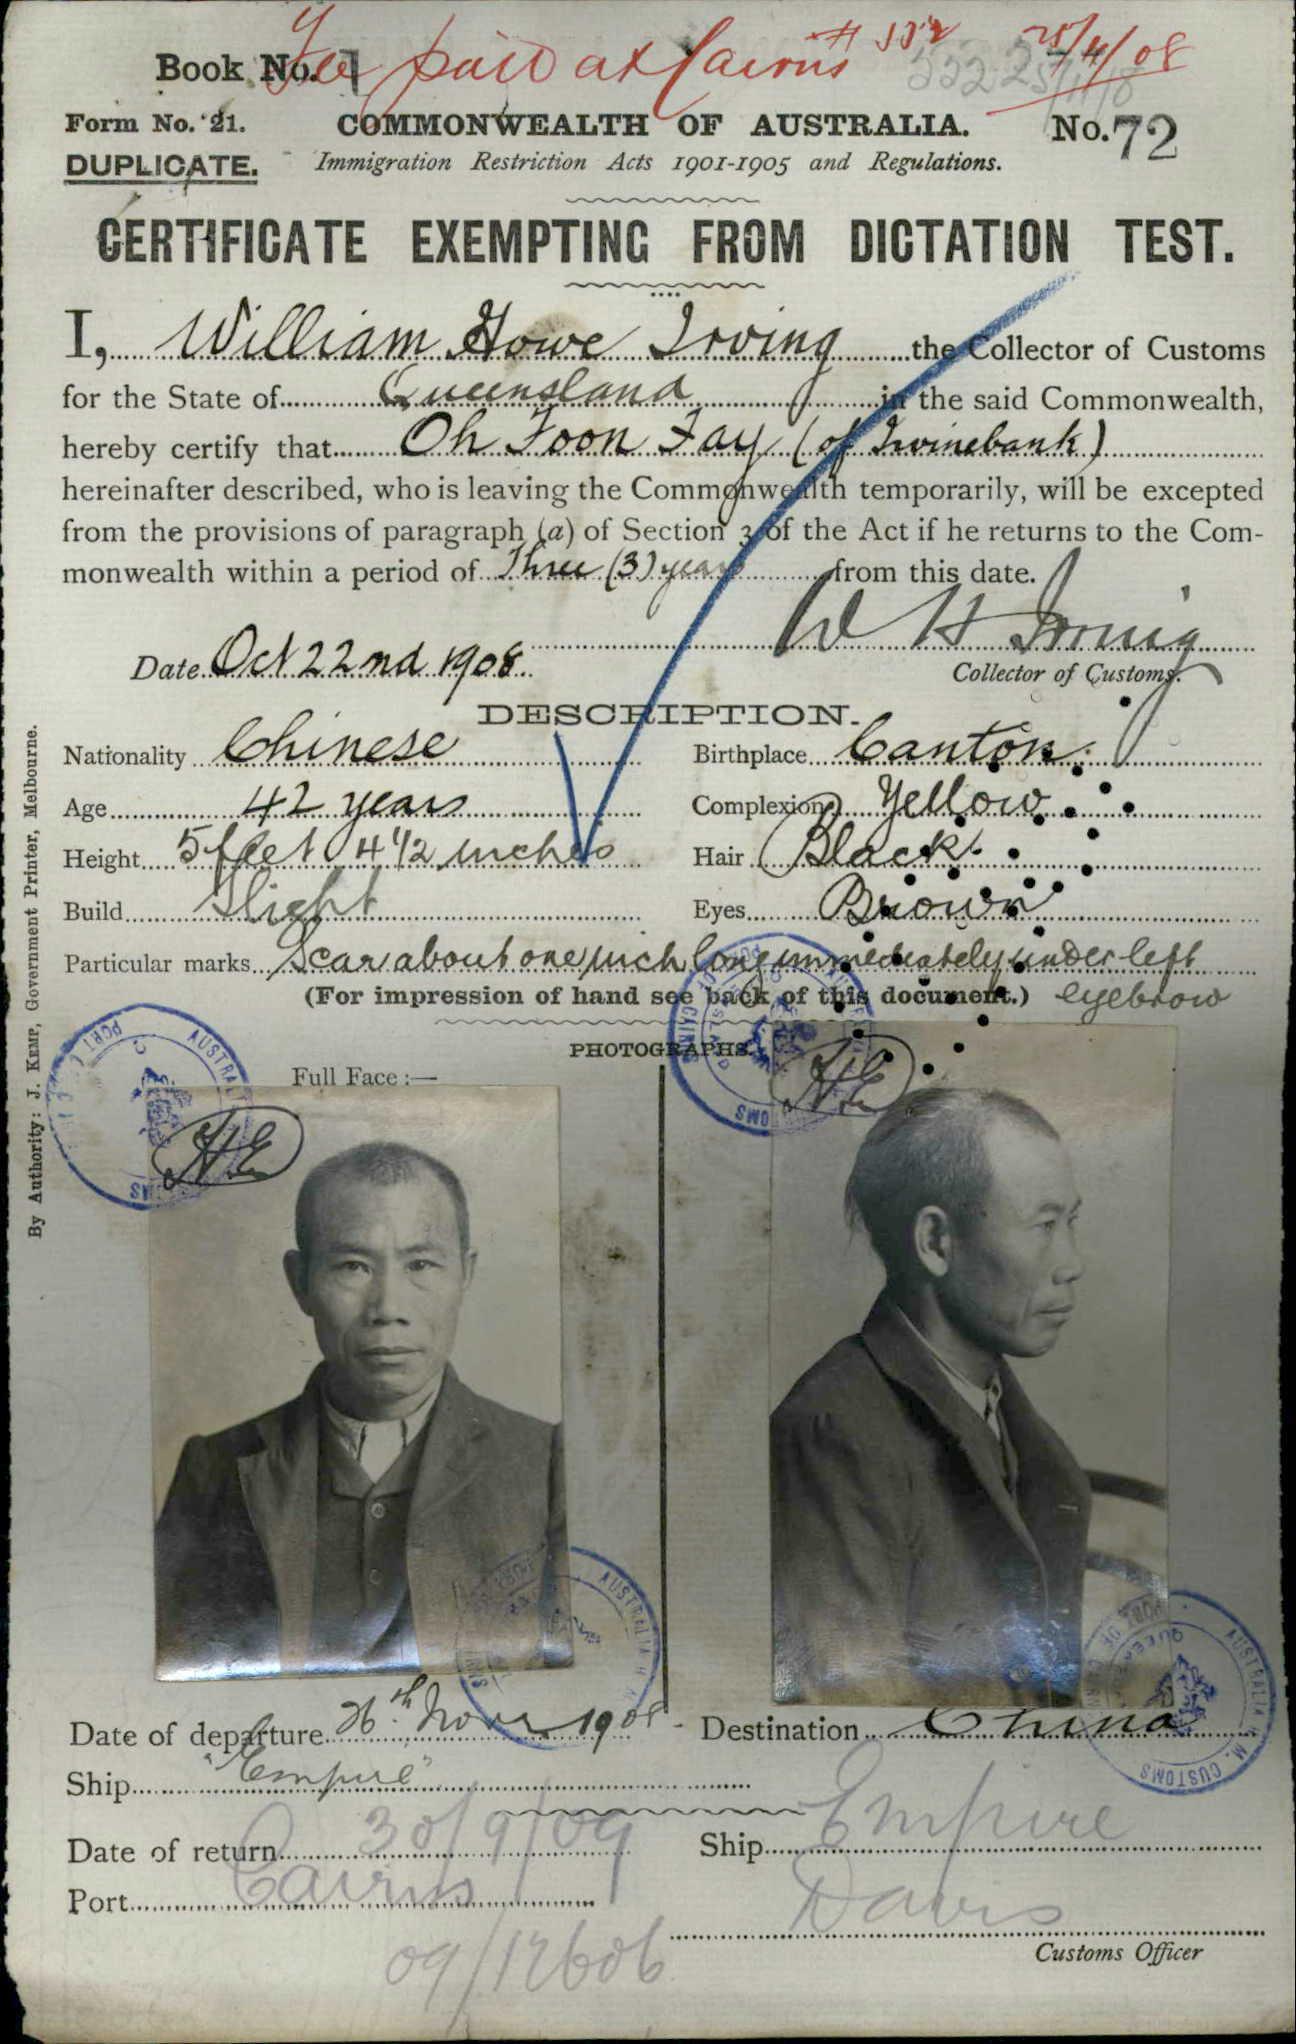 Fee paid at Cairns # 552 25/11/08
Book No. 1
552 25/11/8
Form No. 21. COMMONWEALTH OF AUSTRALIA. No. 72
DUPLICATE. Immigration Restriction Acts 1901-1905 and Regulations.
CERTIFICATE EXEMPTING FROM DICTATION TEST.
I, William Howe Irving the Collector of Customs
for the State of Queensland in the said Commonwealth,
hereby certify that Oh Foon Fay (of Irvinebank)
hereinafter described, who is leaving the Commonwealth temporarily, will be excepted
from the provisions of paragraph (a) of Section 3 of the Act if he returns to the Com-
monwealth within a period of Three (3) years from this date.
W H Irving
Date Oct 22nd 1908.
Collector of Customs.
DESCRIPTION.
Nationality Chinese Birthplace Canton
Age 42 years Complexion Yellow
Height 5 feet 4 1/2 inches Hair Black
Build Slight Eyes Brown
Particular marks Scar about one inch long immediately under left
(For impression of hand see back of this document.) eyebrow
PHOTOGRAPHS.
Full Face:—
By Authority: J. KEMP, Government Printer, Melbourne.
Date of departure 26th Novr 1908. Destination China
Ship "Empire"
Date of return 30/9/09 Ship Empire
Port Cairns Davis
Customs Officer
09/12606